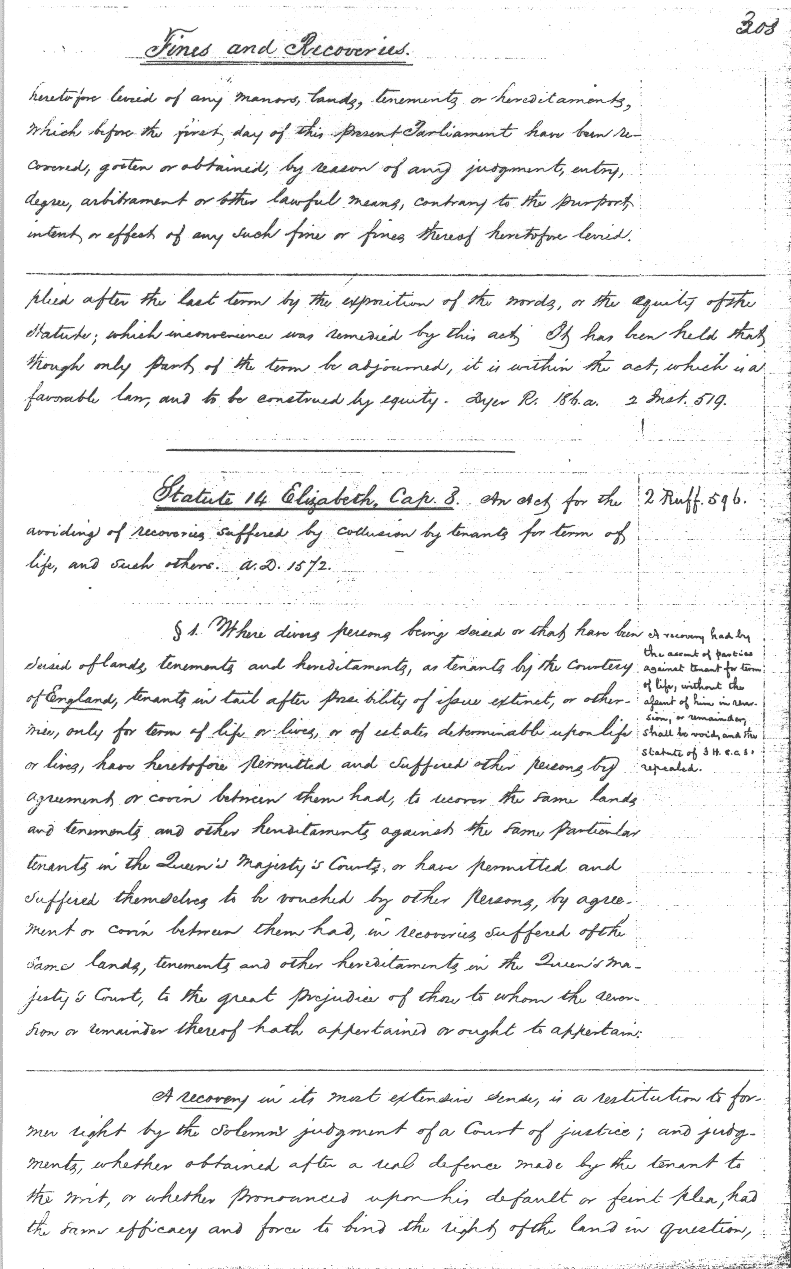 308
Fines and Recoveries.
heretofore levied of any manors, lands, tenements or hereditaments,
which before the first day of this present Parliament have been re-
covered, gotten or obtained, by reason of any judgment, entry,
degree, arbitrament or other lawful means, contrary to the purport
intent or effect of any such fine or fines thereof heretofore levied.
plied after the last term by the exposition of the words, or the equity of the
statute; which inconvenience was remedied by this act. It has been held that
though only part of the term be adjourned, it is within the act, which is a
favorable law, and to be construed by equity. Dyer R. 186.a. 2 Inst. 519.
Statute 14 Elizabeth, Cap. 8. An Act for the
avoiding of recoveries suffered by collusion by tenants for term of
life, and such others. A.D. 1572.
2 Ruff. 596.
§ 1. Where divers persons being seised or that have been
seised of lands, tenements and hereditaments, as tenants by the Courtesy
of England, tenants in tail after possibility of issue extinct, or other-
wise, only for term of life or lives, or of estates determinable upon life
or lives, have heretofore permitted and suffered other persons by
agreement or covin between them had, to recover the same lands
and tenements and other hereditaments against the same particular
tenants in the Queen's Majesty's Courts, or have permitted and
suffered themselves to be vouched by other persons, by agree-
ment or covin between them had, in recoveries suffered of the
same lands, tenements and other hereditaments in the Queen's Ma-
jesty's Court, to the great prejudice of those to whom the rever-
sion or remainder thereof hath appertained or ought to appertain:
A recovery had by
the assent of parties
against tenant for term
of life, without the
assent of him in rever-
sion, or remainder,
shall be void, and the
statute of 32 H. 8. c. 31.
repealed.
A recovery in its most extensive sense, is a restitution to for-
mer right by the solemn judgment of a Court of justice; and judg-
ments, whether obtained after a real defence made by the tenant to
the writ, or whether pronounced upon his default or feint plea, had
the same efficacy and force to bind the right of the land in question,